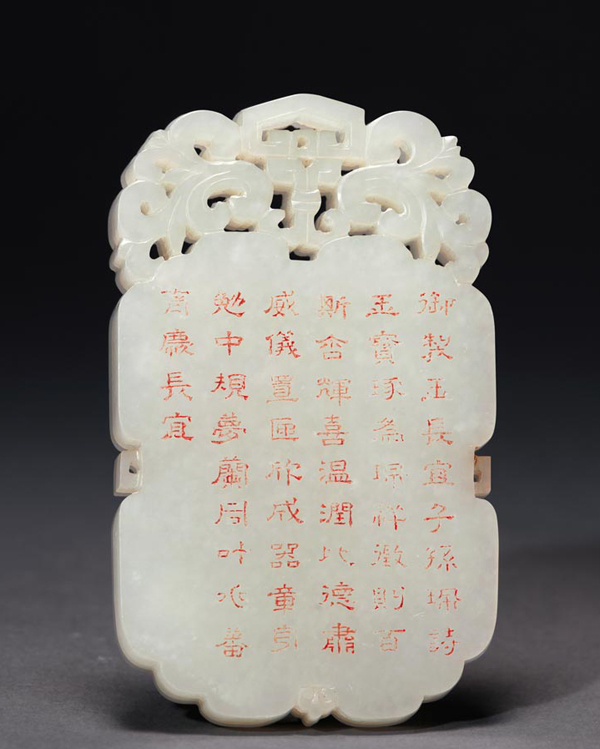 御製玉長宜子孫珮詩
玉寶琢為祥徵則百
斯含輝喜溫潤比德肅
威儀置匣欣成器童
勉中規夢蘭周叶兆蕃
慶長宜